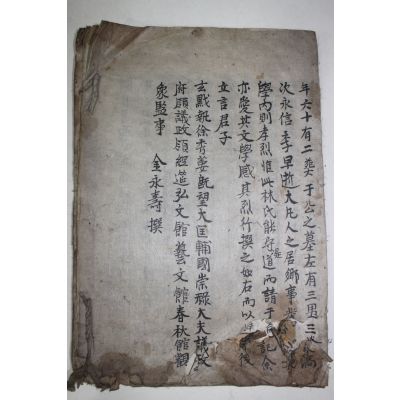 年六十有二葬于公之墓左有三男三
次永信季早逝大凡人之居鄉事
學內則孝烈惟此林氏能守是道而請于余記余
亦愛其文學感其烈行撰之如右而以俟後
立言君子
玄黓執徐季姜旣望大匡輔國崇祿大夫議政
府領議政領經筵弘文館藝文館春秋館觀
象監事 金永壽撰